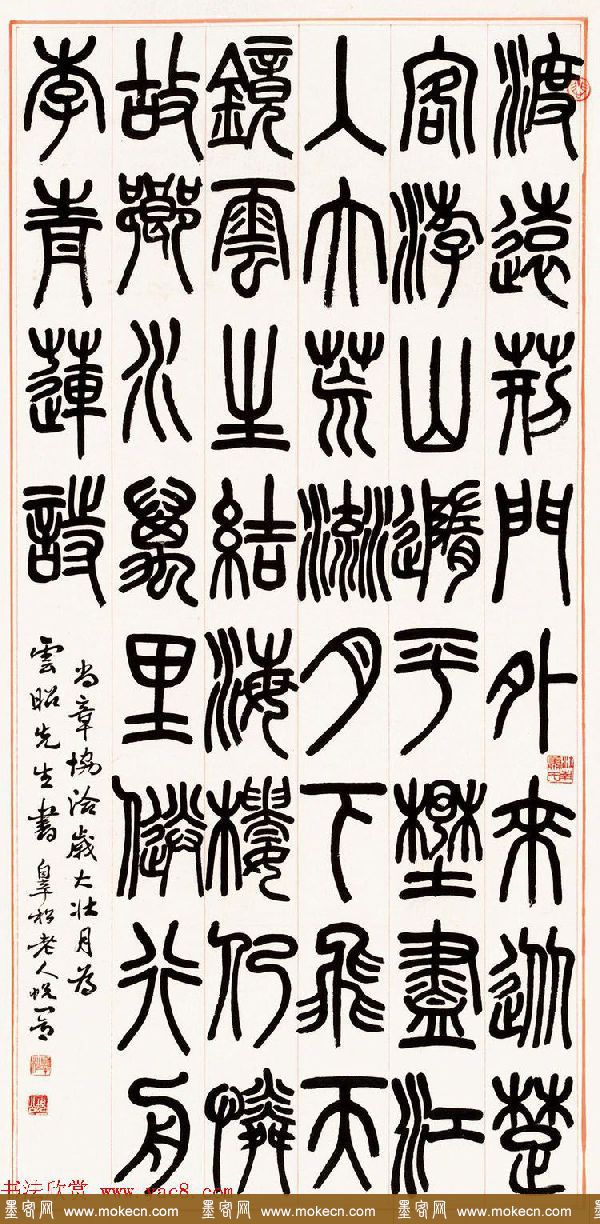 渡遠荊門外來從楚
客游山隨平壄盡江
入大荒流月下飛天
鏡雲生結海樓仍憐
故鄉水萬里送行舟
李青蓮詩
尚章協洽歲大壯月為
雲昭先生書 老人
书法欣赏 www.yac8.com
墨客网 www.mokecn.com 墨客网 www.mokecn.com 墨客网 www.mokecn.com